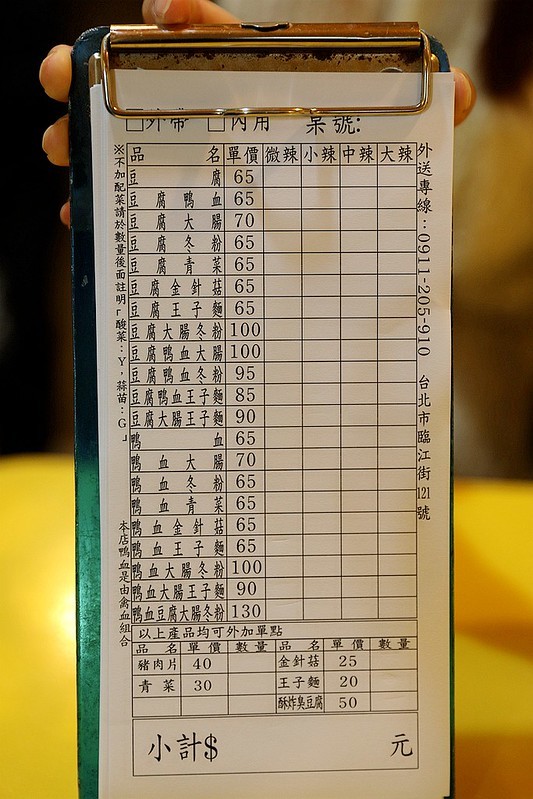 □外帶 □內用 桌號:
品名 單價 微辣 小辣 中辣 大辣
豆腐 65
豆腐鴨血 65
豆腐大腸 70
豆腐冬粉 65
豆腐青菜 65
豆腐金針菇 65
豆腐王子麵 65
豆腐大腸冬粉 100
豆腐鴨血大腸 100
豆腐鴨血冬粉 95
豆腐鴨血王子麵 85
豆腐大腸王子麵 90
鴨血 65
鴨血大腸 70
鴨血冬粉 65
鴨血青菜 65
鴨血金針菇 65
鴨血王子麵 65
鴨血大腸冬粉 100
鴨血大腸王子麵 90
鴨血豆腐大腸冬粉 130
以上產品均可外加單點
品名 單價 數量 品名 單價 數量
豬肉片 40 金針菇 25
青菜 30 王子麵 20
酥炸臭豆腐 50
小計$ 元
※不加配菜請於數量後面註明「酸菜:Y,蒜苗:G」
本店鴨血是由禽血組合
外送專線:0911-205-910 台北市臨江街121號